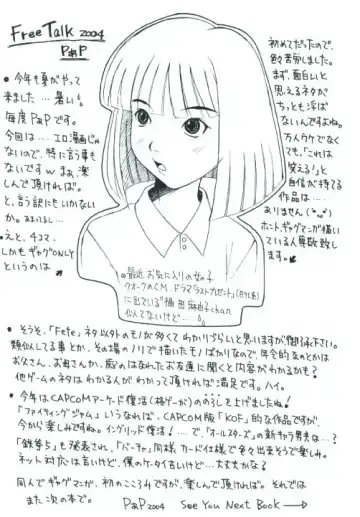 Free Talk 2004
PaP
● 今年も夏がやって
来ました … 暑い。
毎度 PaP です。
今回は …… エロ漫画じゃ
ないので、特に言う事も
ないですw まぁ、楽
しんで頂ければ。
と、言う訳にもいかない
か。
● えと、4コマ、
しかもギャグONLY
というのは
初めてだったので、
色々苦労しました。
まず、面白いと
思えるネタが
ちっとも浮ば
ないんですよね。
万人ウケでなく
ても、「これは
笑える!」と
自信が持てる
作品は……
ありません
ホント、ギャグマンガ描いて
いる人尊敬致し
ます。
●最近お気に入りの女の子
クオークのCM、ドラマ「ラストプレゼント」
に出ている
似てないけど…。
● そうそ、「Fate」ネタ以外のモノが多くてわかりづらいと思いますが御了承下さい。
類似してる事とか、その場のノリで描いたモノばかりなので、年令的なのとかは
お父さん、お母さんか、歳のはなれたお友達に聞くと内容がわかるかも?
他ゲームのネタはわかる人がわかって頂ければ満足です。ハイ。
● 今年はCAPCOMアーケード復活(格ゲーが)ののろしを上げましたね!
「ファイティングジャム」いうなれば、CAPCOM版「KOF」的な作品ですが、
今から楽しみですね。イングリッド復活! …… で、「オールスターズ」の新キャラ男共は…?
「鉄拳5」も発表され、「バーチャ」同様カード仕様で色々出来そうで楽しみ。
ネット対応は言いけど、僕のケータイ古いけど……大丈夫かな?
同人でギャグマンガ、初のこころみですが、楽しんで頂ければ。それでは
また次の本で。 PaP 2004 See You Next Book →